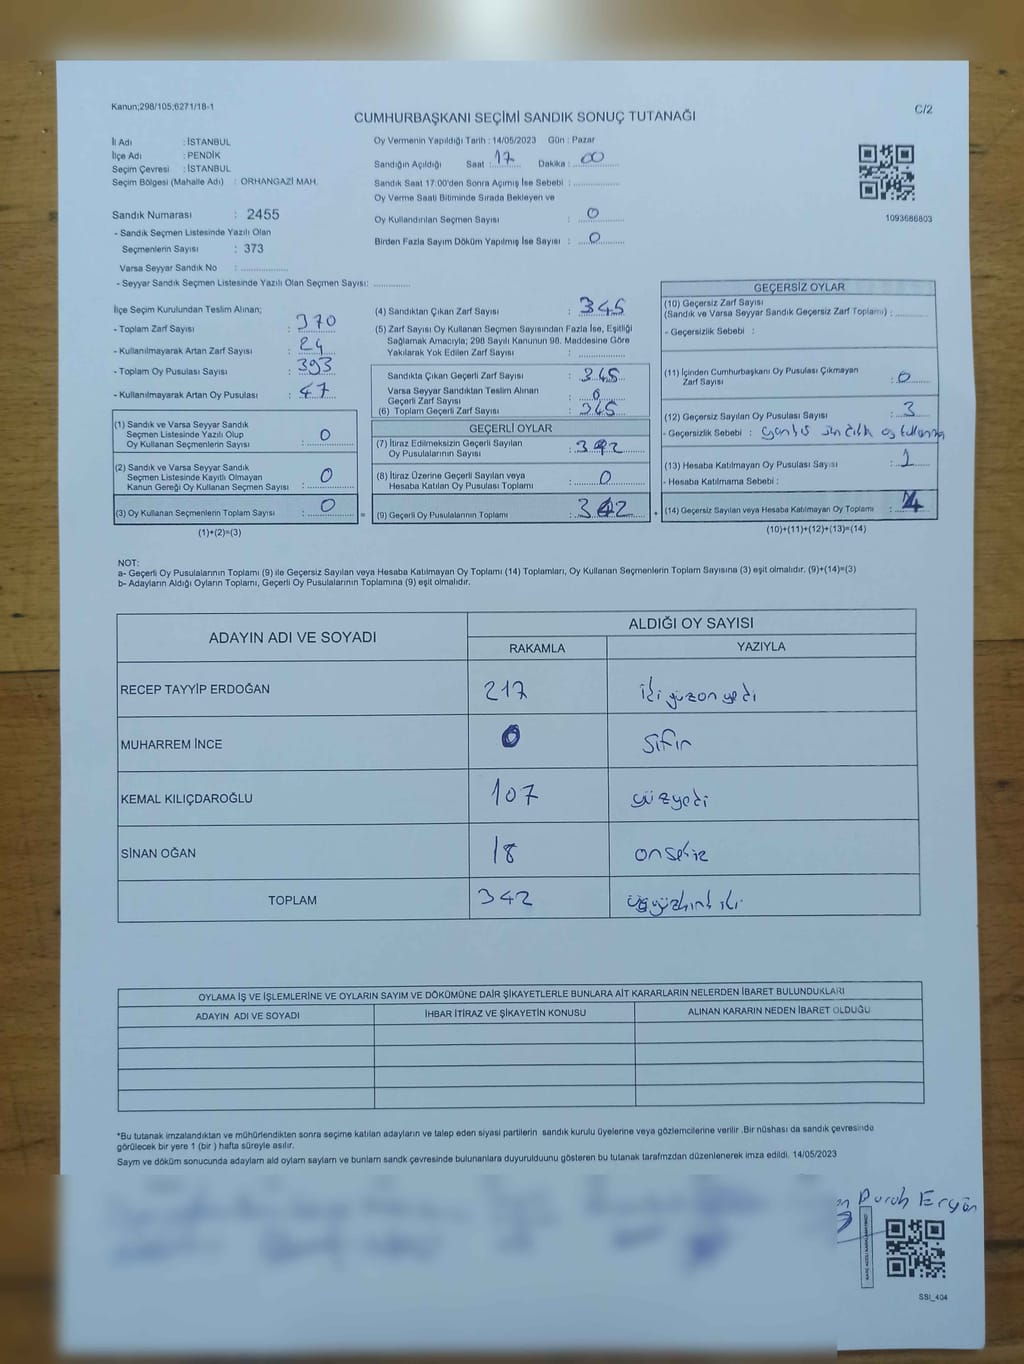 Kanun;298/105;6271/18-1
C/2
CUMHURBAŞKANI SEÇİMİ SANDIK SONUÇ TUTANAĞI
İl Adı : İSTANBUL
İlçe Adı : PENDİK
Seçim Çevresi : İSTANBUL
Seçim Bölgesi (Mahalle Adı) : ORHANGAZİ MAH.
Sandık Numarası : 2455
- Sandık Seçmen Listesinde Yazılı Olan
Seçmenlerin Sayısı : 373
Varsa Seyyar Sandık No : ................
- Seyyar Sandık Seçmen Listesinde Yazılı Olan Seçmen Sayısı: ............
Oy Vermenin Yapıldığı Tarih : 14/05/2023 Gün : Pazar
Sandığın Açıldığı Saat : 17 Dakika : 00
Sandık Saat 17:00'den Sonra Açımış İse Sebebi : ................
Oy Verme Saati Bitiminde Sırada Bekleyen ve
Oy Kullandırılan Seçmen Sayısı : 0
Birden Fazla Sayım Döküm Yapılmış İse Sayısı : 0
1093686803
İlçe Seçim Kurulundan Teslim Alınan;
- Toplam Zarf Sayısı : 370
- Kullanılmayarak Artan Zarf Sayısı : 24
- Toplam Oy Pusulası Sayısı : 393
- Kullanılmayarak Artan Oy Pusulası : 47
(1) Sandık ve Varsa Seyyar Sandık
Seçmen Listesinde Yazılı Olup
Oy Kullanan Seçmenlerin Sayısı : 0
(2) Sandık ve Varsa Seyyar Sandık
Seçmen Listesinde Kayıtlı Olmayan
Kanun Gereği Oy Kullanan Seçmen Sayısı : 0
(3) Oy Kullanan Seçmenlerin Toplam Sayısı : 0 =
(1)+(2)=(3)
(4) Sandıktan Çıkan Zarf Sayısı : 345
(5) Zarf Sayısı Oy Kullanan Seçmen Sayısından Fazla İse, Eşitliği
Sağlamak Amacıyla; 298 Sayılı Kanunun 98. Maddesine Göre
Yakılarak Yok Edilen Zarf Sayısı : ................
Sandıkta Çıkan Geçerli Zarf Sayısı : 345
Varsa Seyyar Sandıktan Teslim Alınan
Geçerli Zarf Sayısı : 0
(6) Toplam Geçerli Zarf Sayısı : 345
GEÇERLİ OYLAR
(7) İtiraz Edilmeksizin Geçerli Sayılan
Oy Pusulalarının Sayısı : 342
(8) İtiraz Üzerine Geçerli Sayılan veya
Hesaba Katılan Oy Pusulası Toplamı : 0
(9) Geçerli Oy Pusulalarının Toplamı : 342 +
GEÇERSİZ OYLAR
(10) Geçersiz Zarf Sayısı
(Sandık ve Varsa Seyyar Sandık Geçersiz Zarf Toplamı) : ............
- Geçersizlik Sebebi :
(11) İçinden Cumhurbaşkanı Oy Pusulası Çıkmayan
Zarf Sayısı : 0
(12) Geçersiz Sayılan Oy Pusulası Sayısı : 3
- Geçersizlik Sebebi : yanlış sandık oy kullanma
(13) Hesaba Katılmayan Oy Pusulası Sayısı : 1
- Hesaba Katılmama Sebebi :
(14) Geçersiz Sayılan veya Hesaba Katılmayan Oy Toplamı : 4
(10)+(11)+(12)+(13)=(14)
NOT:
a- Geçerli Oy Pusulalarının Toplamı (9) ile Geçersiz Sayılan veya Hesaba Katılmayan Oy Toplamı (14) Toplamları, Oy Kullanan Seçmenlerin Toplam Sayısına (3) eşit olmalıdır. (9)+(14)=(3)
b- Adayların Aldığı Oyların Toplamı, Geçerli Oy Pusulalarının Toplamına (9) eşit olmalıdır.
ADAYIN ADI VE SOYADI
ALDIĞI OY SAYISI
RAKAMLA YAZIYLA
RECEP TAYYİP ERDOĞAN 217 ikiyüzonyedi
MUHARREM İNCE 0 sıfır
KEMAL KILIÇDAROĞLU 107 yüzyedi
SİNAN OĞAN 18 onsekiz
TOPLAM 342
OYLAMA İŞ VE İŞLEMLERİNE VE OYLARIN SAYIM VE DÖKÜMÜNE DAİR ŞİKAYETLERLE BUNLARA AİT KARARLARIN NELERDEN İBARET BULUNDUKLARI
ADAYIN ADI VE SOYADI İHBAR İTİRAZ VE ŞİKAYETİN KONUSU ALINAN KARARIN NEDEN İBARET OLDUĞU
*Bu tutanak imzalandıktan ve mühürlendikten sonra seçime katılan adayların ve talep eden siyasi partilerin sandık kurulu üyelerine veya gözlemcilerine verilir .Bir nüshası da sandık çevresinde
görülecek bir yere 1 (bir ) hafta süreyle asılır.
Sayım ve döküm sonucunda adayların ald oyların sayları ve bunların sandk çevresinde bulunanlara duyurulduunu gösteren bu tutanak tarafmzdan düzenlenerek imza edildi. 14/05/2023
SSI_404